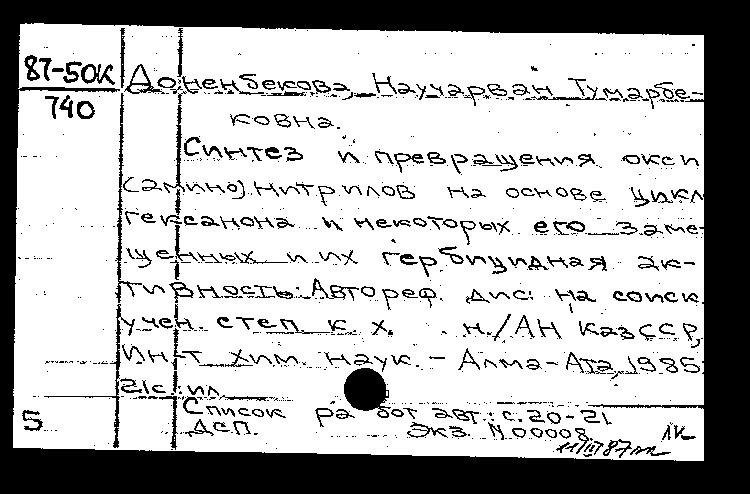 87-50К
740
Доненбекова, Научарван Тумарбе-
ковна.
Синтез и превращения окси
(амино)нитрилов на основе цикл
гексанона и некоторых его заме-
щенных и их гербицидная ак-
тивность: Автореф. дис. на соиск.
учен. степ. к. х. н./АН КазССР,
Ин-т хим. наук. - Алма-Ата, 1985.
21с. ил.
Список работ авт.: с. 20-21
Деп. Экз. N 00008
5 ЛК
11/III 87